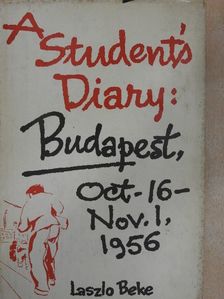 A
Student's
Diary:
Budapest,
Oct-16-
Nov. 1,
1956
Laszlo Beke